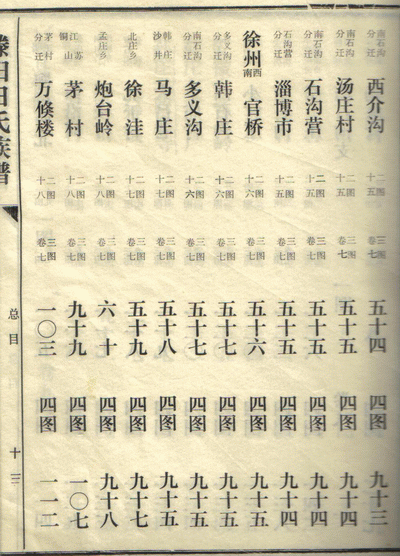 南石沟分迁 西介沟 二图十五 三图卷七 五十四 四图 九十三
南石沟分迁 汤庄村 二图十五 三图卷七 五十五 四图 九十四
南石沟分迁 石沟营 二图十五 三图卷七 五十五 四图 九十四
石沟营分迁 淄博市 二图十五 三图卷七 五十五 四图 九十四
徐州西南 小官桥 二图十六 三图卷七 五十六 四图 九十五
多义沟分迁 韩庄 二图十六 三图卷七 五十七 四图 九十五
南石沟分迁 多义沟 二图十六 三图卷七 五十七 四图 九十五
韩庄沙井 马庄 二图十七 三图卷七 五十八 四图 九十七
北庄乡 徐洼 二图十七 三图卷七 五十九 四图 九十七
孟庄乡 炮台岭 二图十八 三图卷七 六十 四图 九十八
江苏铜山 茅村 二图十八 三图卷七 九十九 四图 一〇七
茅村分迁 万倏楼 二图十八 三图卷七 一〇三 四图 一一二
田氏族谱 总目 十三